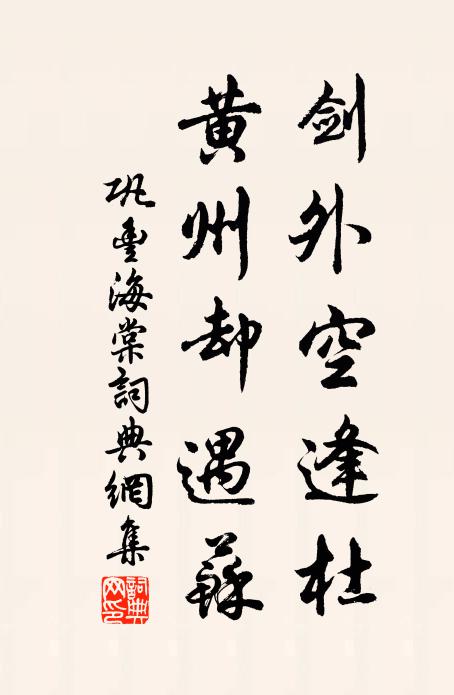 劍外空逢杜
黃州却遇蘇
巩豐海棠詞典網集
詞典網印